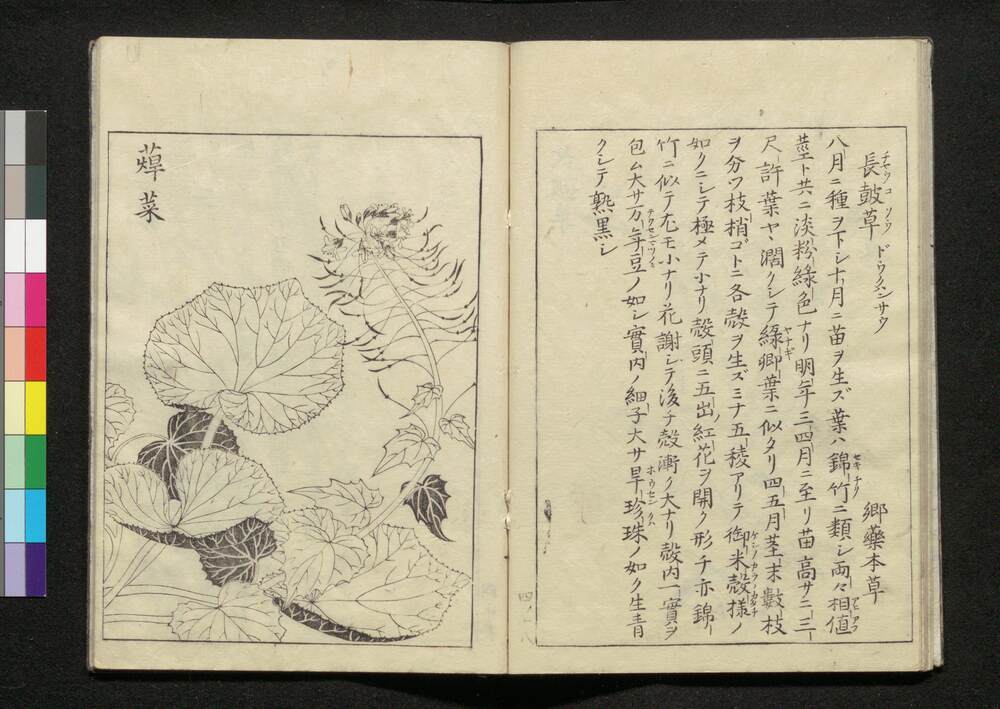 長皷草 ドウクハンサウ 郷藥本草
チヤウコ サウ
八月ニ種ヲ下シ十月ニ苗ヲ生ズ葉ハ錦竹ニ類シ両々相値
セキ チク アヒ アフ
莖ト共ニ淡粉綠色ナリ明年三四月ニ至リ苗高サ二三
尺許葉ヤヽ濶クシテ綠柳葉ニ似タリ四五月茎末數枝
ヤナギ
ヲ分ツ枝梢ゴトニ各殻ヲ生ズミナ五稜アリテ御米殻様ノ
ケシノカラノカタチ
如クニシテ極メテ小ナリ殻頭ニ五出ノ紅花ヲ開ク形チ亦錦
竹ニ似テ尤モ小ナリ花謝シテ後チ殻漸ク大ナリ殻内一實ヲ
包ム大サ万年豆ノ如シ實内ノ細子大サ旱珍珠ノ如ク生青
ホウセンクハ
クシテ熟黒シ
蔊菜